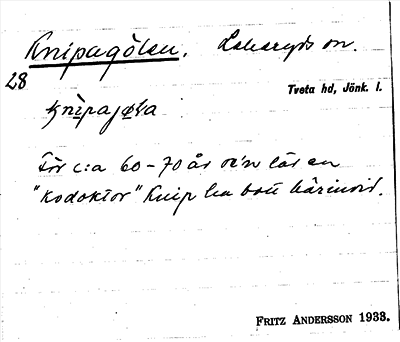 Knipagölen. Lekeryds sn.
28
Tveta hd, Jönk. l.
För c:a 60-70 år se'n lär en
"Kodoktor" Knip ha bott härinvid.
FRITZ ANDERSSON 1933.